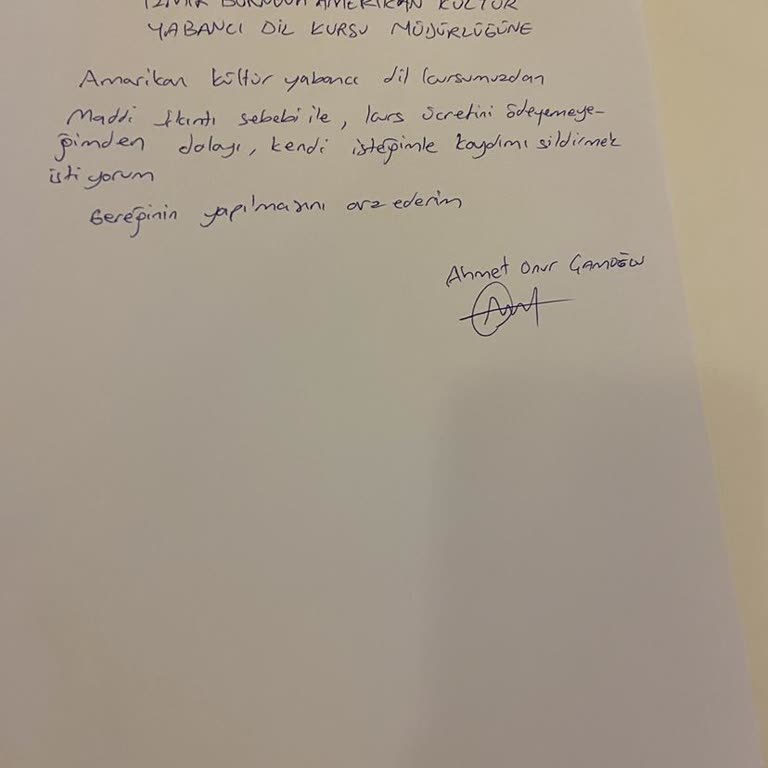 İZMİR BORNOVA AMERİKAN KÜLTÜR
YABANCI DİL KURSU MÜDÜRLÜĞÜNE
Amarikan kültür yabancı dil kursumuzdan
Maddi sıkıntı sebebi ile, kurs ücretini ödeyemeye-
ğimden dolayı, kendi isteğimle kaydımı sildirmek
istiyorum
Gereğinin yapılmasını arz ederim
Ahmet Onur ÇAMOĞLU